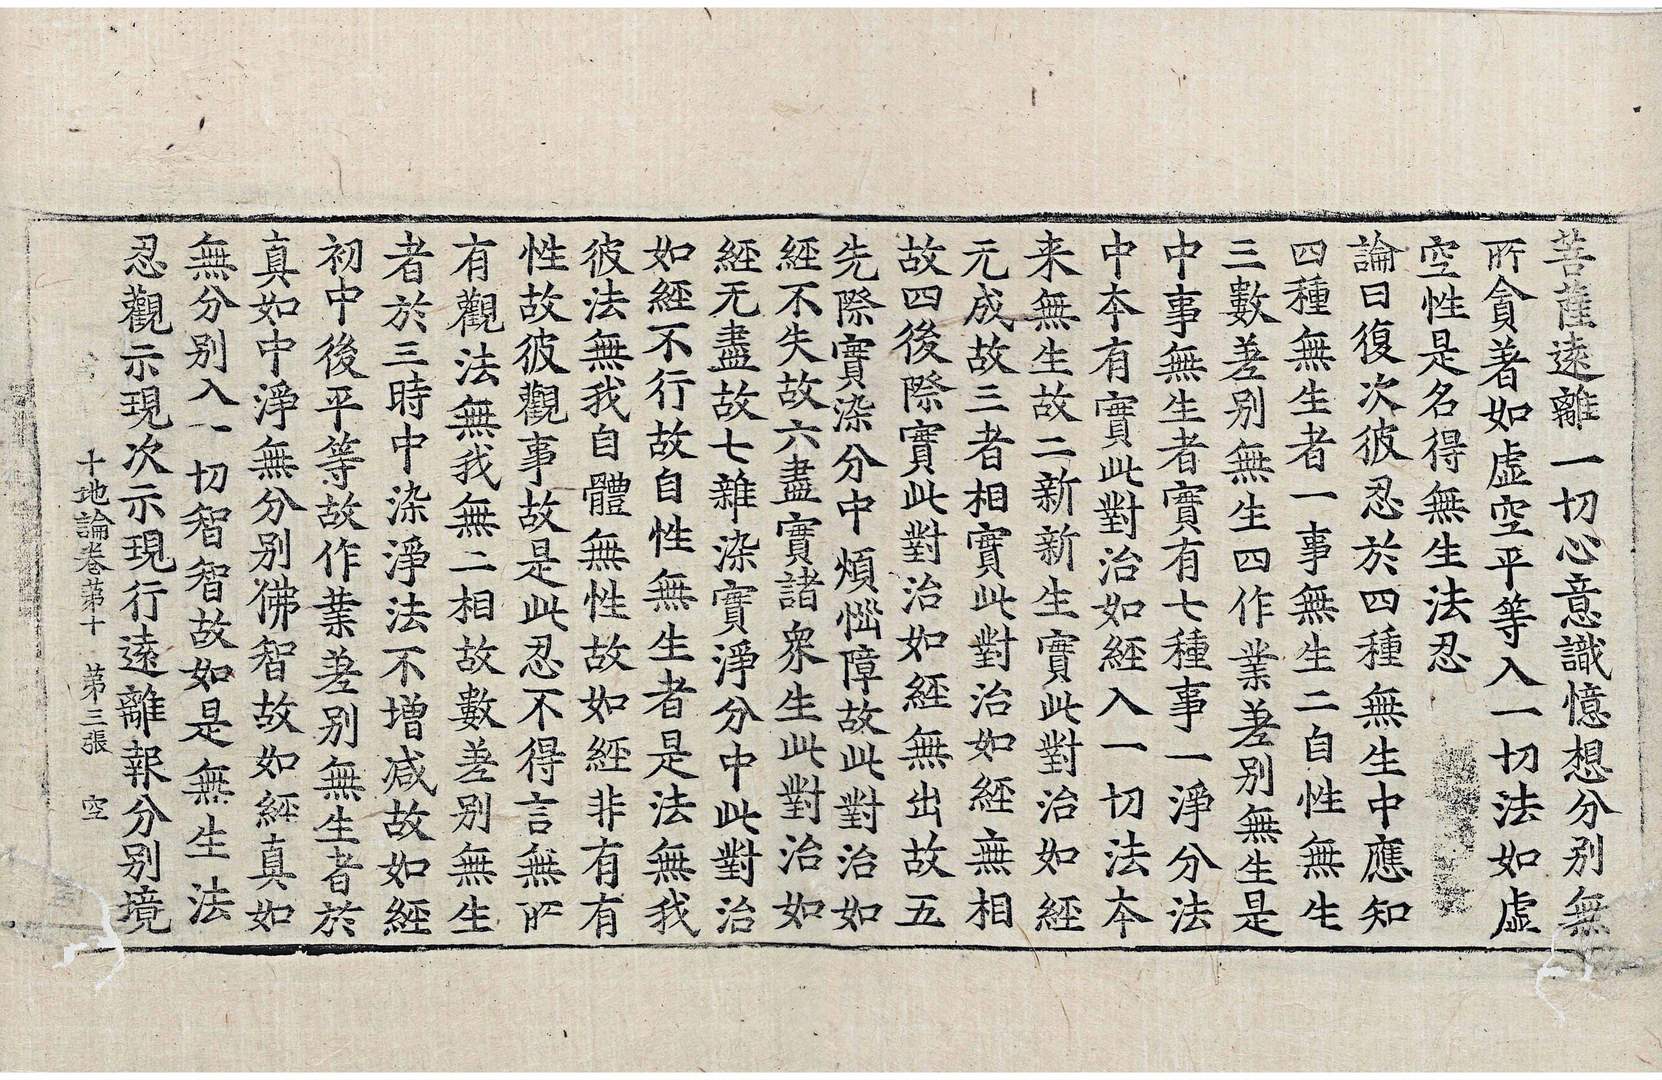 菩薩遠離一切心意識憶想分別無
所貪著如虛空平等入一切法如虛
空性是名得無生法忍
論曰復次彼忍於四種無生中應知
四種無生者一事無生二自性無生
三數差別無生四作業差別無生是
中事無生者實有七種事一淨分法
中本有實此對治如經入一切法本
来無生故二新新生實此對治如經
无成故三者相實此對治如經無相
故四後際實此對治如經無出故五
先際實染分中煩惱障故此對治如
經不失故六盡實諸衆生此對治如
經无盡故七雜染實淨分中此對治
如經不行故自性無生者是法無我
彼法無我自體無性故如經非有有
性故彼觀事故是此忍不得言無所
有觀法無我無二相故數差別無生
者於三時中染淨法不增减故如經
初中後平等故作業差別無生者於
真如中淨無分別佛智故如經真如
無分別入一切智智故如是無生法
忍觀示現次示現行遠離報分別境
十地論卷苐十　苐三張　空